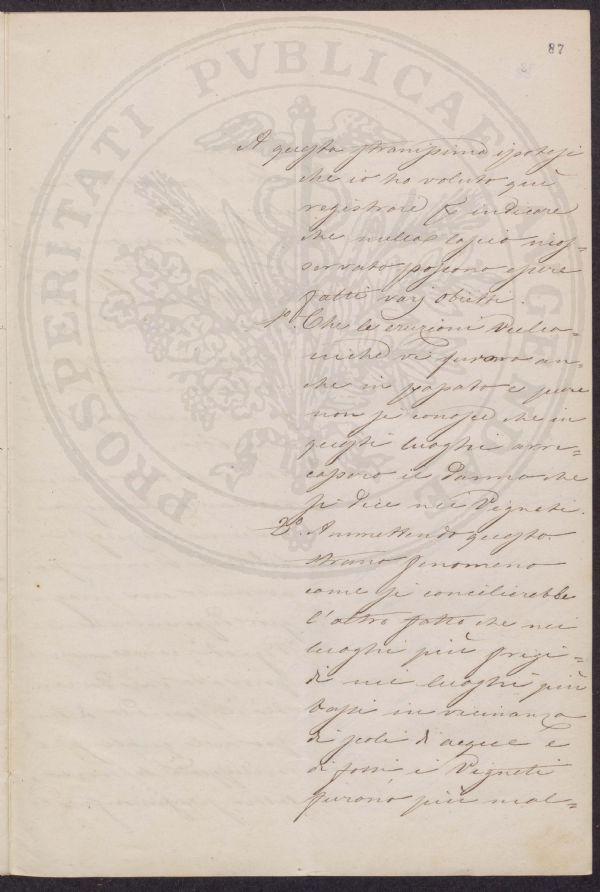 87
A questa stranissima ipotesi
che io ho voluto quì
registrare p indicare
che nulla lascio inos=
servato possono essere
fatti varj obietti.
1°. Che le eruzioni Vulca=
niche vi furono an=
che in passato e pure
non si conosce che in
questi luoghi arre=
cassero il danno che
si dice nei Vigneti.
2°. Ammettendo questo
strano fenomeno
come si concilierebbe
l'altro fatto che nei
luoghi più frigi=
di nei luoghi più
bassi in vicinanza
di scoli di acque e
di fossi i Vigneti
furono più mal=
PROSPERITATI PVBLICAE AVGENDAE